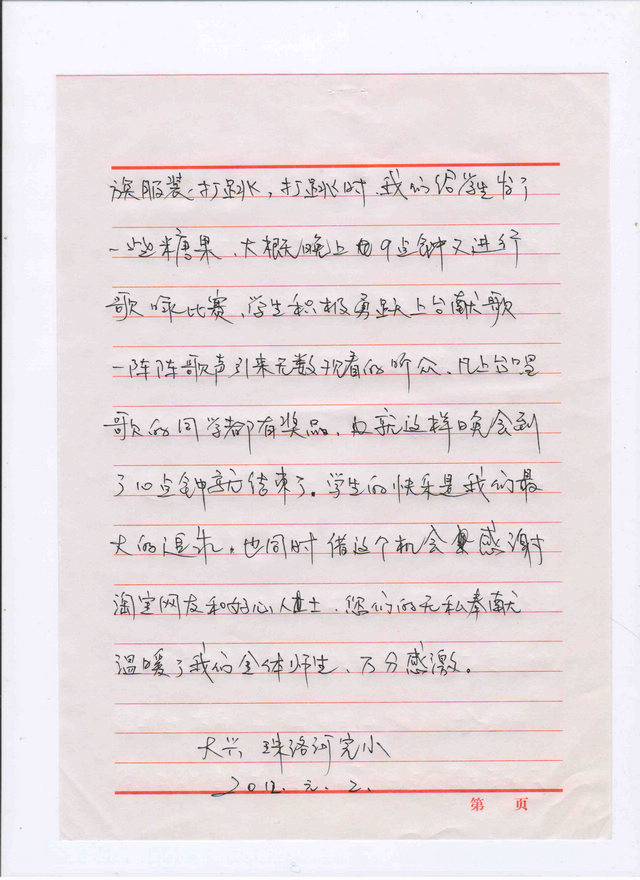 族服装、打跳，打跳时、我们给学生发了
一些糖果、大概晚上9点钟又进行
歌咏比赛、学生积极勇跃上台献歌
一阵阵歌声引来无数观看的听众、凡上台唱
歌的同学都有奖品，就这样晚会到
了10点钟就结束了。学生的快乐是我们最
大的追求。也同时借这个机会感谢
淘宝网友和好心人士、您们的无私奉献
温暖了我们全体师生、万分感激。
大兴 珠洛河完小
2012.元.2.
第 页